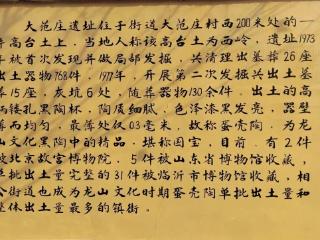 大范庄遗址位于街道大范庄村西200米处的一
高台土上，当地人称该高台土为西岭，遗址1973
年被首次发现并做局部发掘，共清理出墓葬26座
出土器物768件，1977年，开展第二次发掘共出土墓
葬15座，灰坑6处，随葬器物130余件，出土的高
柄镂孔黑陶杯，陶质细腻，色泽漆黑发亮，器壁
薄而均匀，最薄处仅0.3毫米，故称蛋壳陶，为龙
山文化黑陶中的精品，堪称国宝，目前，有2件
被北京故宫博物院，5件被山东省博物馆收藏，
单批出土完整的31件被临沂市博物馆收藏，相
街道也成为龙山文化时期蛋壳陶单批出土量和
整体出土量最多的镇街。